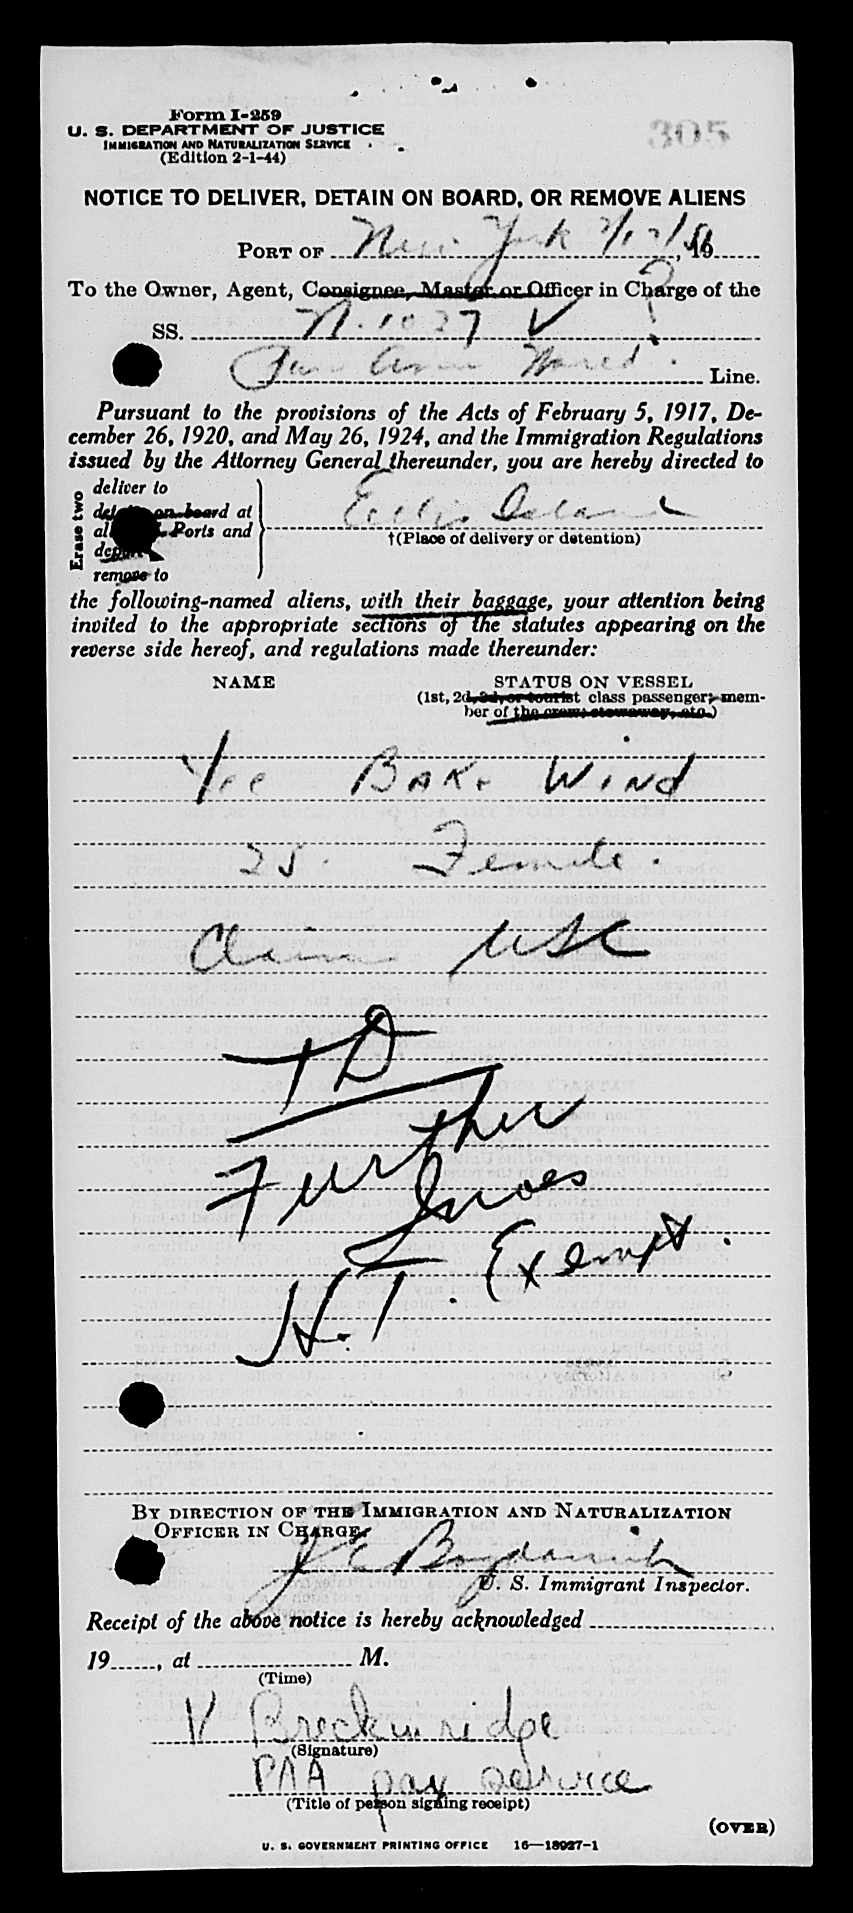 Form I-259
U. S. DEPARTMENT OF JUSTICE
IMMIGRATION AND NATURALIZATION SERVICE
(Edition 2-1-44)
305
NOTICE TO DELIVER, DETAIN ON BOARD, OR REMOVE ALIENS
PORT OF New York , 19
To the Owner, Agent, Consignee, Master or Officer in Charge of the
?
SS. N. 1027 V
Pan Amn World. Line.
Pursuant to the provisions of the Acts of February 5, 1917, De-
cember 26, 1920, and May 26, 1924, and the Immigration Regulations
issued by the Attorney General thereunder, you are hereby directed to
Erase two
deliver to
on board at
Ports and
remove to
Ellis Island
†(Place of delivery or detention)
the following-named aliens, with their baggage, your attention being
invited to the appropriate sections of the statutes appearing on the
reverse side hereof, and regulations made thereunder:
NAME STATUS ON VESSEL
(1st, 2d, 3d, or tourist class passenger; mem-
ber of the crew; stowaway, etc.)
Yee BAK. WIND
25. Female.
Claim USC
TD
Further
H.T. Exempt.
BY DIRECTION OF THE IMMIGRATION AND NATURALIZATION
OFFICER IN CHARGE.
U. S. Immigrant Inspector.
Receipt of the above notice is hereby acknowledged
19......, at M.
(Time)
V Breckinridge
(Signature)
PAA pax service
(Title of person signing receipt)
(OVER)
U. S. GOVERNMENT PRINTING OFFICE 16—18927-1